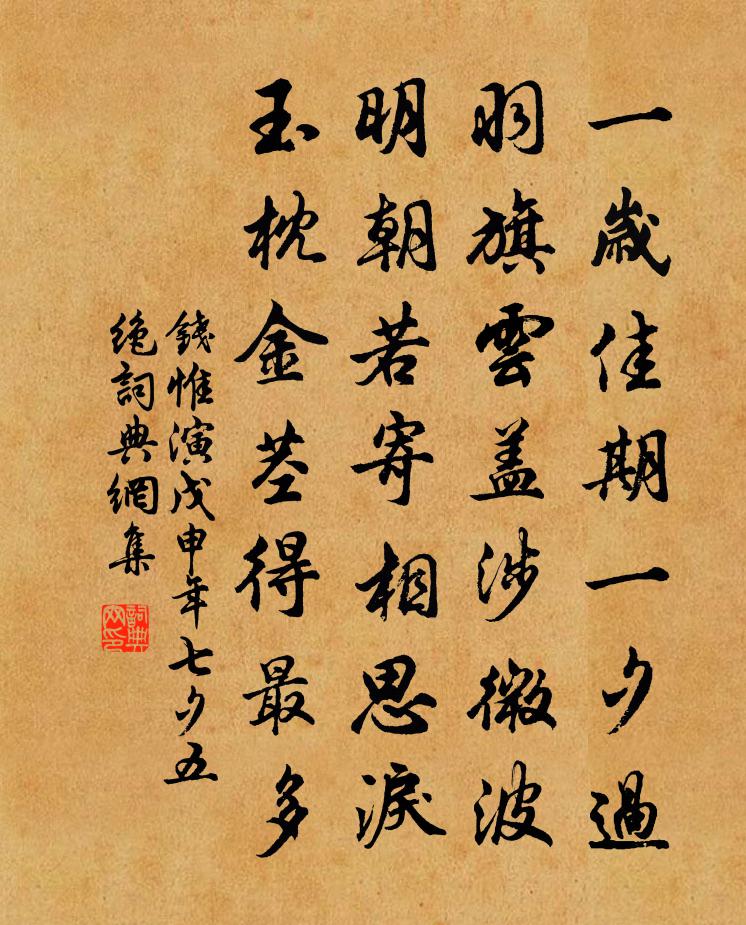 一歲佳期一夕過
羽旗雲盖涉微波
明朝若寄相思淚
玉枕金茎得最多
錢惟演戊申年七夕五
絕詞典網集
詞典
网印